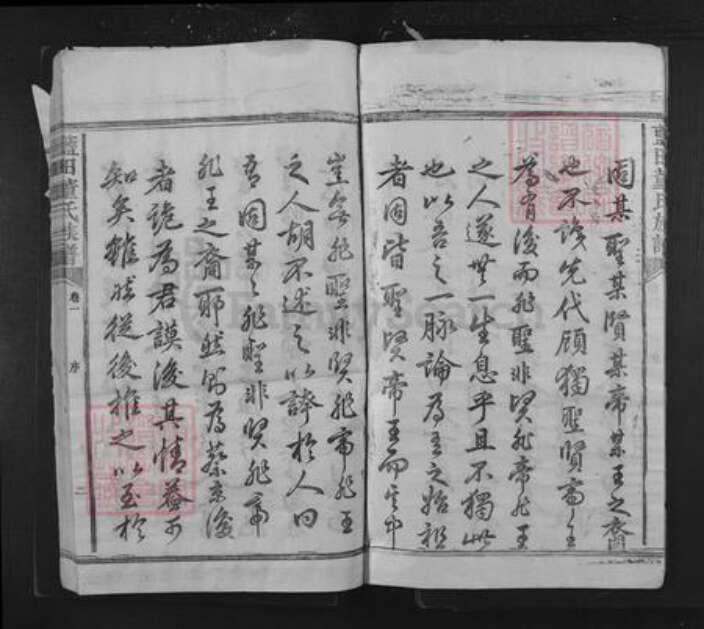 固某聖某賢某帝某王之裔
也不談先代顧獨聖賢帝王
為有後而非聖非賢非帝非王
之人遂無一生息乎且不獨此
也以吾之一脉論為吾之始祖
者固皆聖賢帝王而其中
豈無非聖非賢非帝非王
之人胡不述之以誇於人曰
吾固某之非聖非賢非帝
非王之裔耶然則為蔡京後
者詭為君謨後其情益可
知矣雖然從後推之以至於
藍田 氏族譜
卷一
序
二